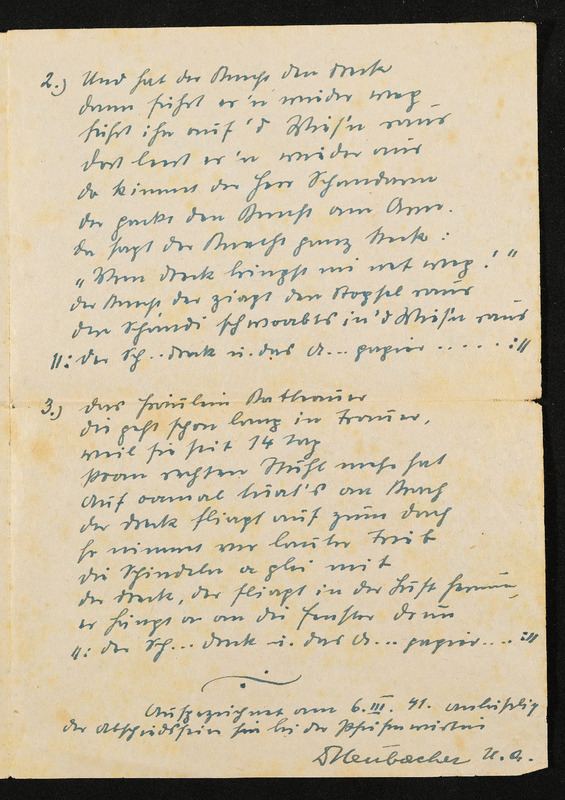 2.) Und hat der Knecht den Dreck
dann führt er'n wieder weg
führt ihn auf 'd Wies'n raus
dort leert er'n wieder aus
da kimmt der Herr Schandarm
der packt den Knecht am Arm.
da sagt der Knecht ganz keck:
„Vom Dreck bringst mi net weg!"
der Knecht der ziagt den Stopsel raus
den Schandi schwoabts in'd Wies'n raus
||: der Sch.. dreck u. das A... papier ..... :||
3.) das Fräulein
die geht schon lang in Trauer,
weil sie seit 14 Tag
koan rechten Stuhl mehr hat
auf oamal tuat's an Krach
der Dreck fliagt auf zum Dach
er nimmt vor lauter Trieb
die Schindeln a glei mit
der Dreck, der fliagt in der Luft herum,
er hängt an die Fenster drum
||: der Sch... dreck u. das A... papier.... :||
Aufgezeichnet am 6.III.41. anläßlich
der Abschiedsfeier bei der
Neubacher U.A.